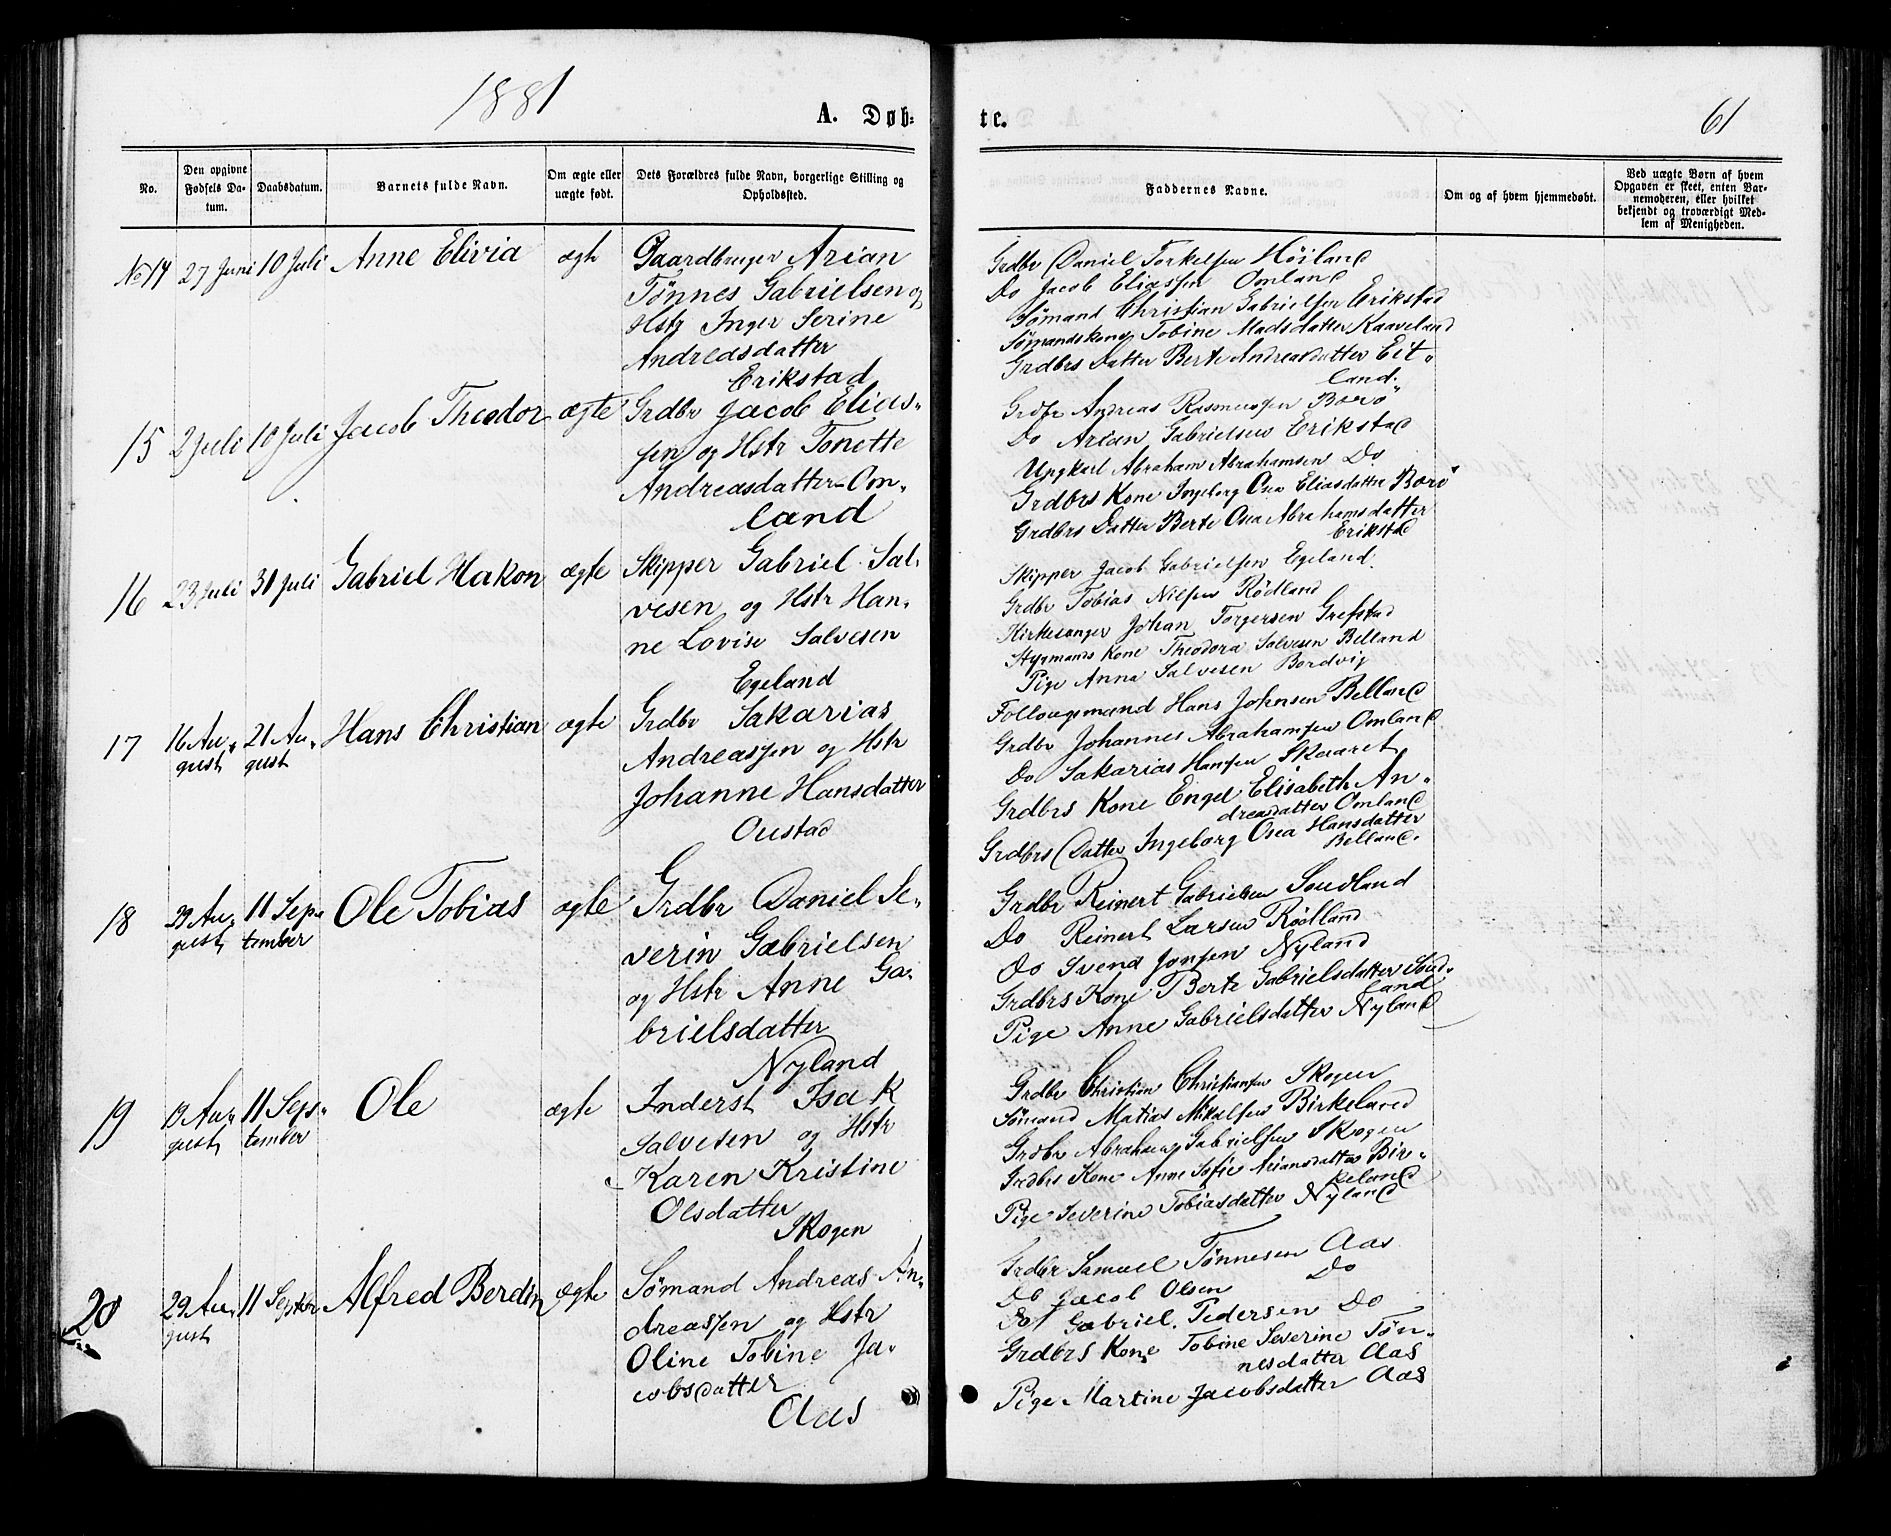 1881
A. Døb-
te.
61
No.
Den opgivne
Fødsels Da-
tum.
Daabsdatum.
Barnets fulde Navn.
Om ægte eller
uægte født.
Dets Forældres fulde Navn, borgerlige Stilling og
Opholdssted.
Faddernes Navne.
Om og af hvem hjemmedøbt.
Ved uægte Børn af hvem
Opgaven er skeet, enten Bar-
nemoderen, eller hvilket
bekjendt og troværdigt Med-
lem af Menigheden.
No 14 27 Juni 10 Juli Anne Elivia ægte
Gaardbruger Arian
Tønnes Gabrielsen og
Hstr Inger Serine
Andreasdatter
Erikstad
Grdbr Daniel Torkelsen Höiland
Do Jacob Eliassen Omland
Sømand Christian Gabrielsen Erikstad
Sømandskone Tobine Madsdatter Kaaveland
Grdbrs Datter Berte Andreasdatter Eit-
land
15 2 Juli 10 Juli Jacob Theodor ægte
Grdbr Jacob Elias-
sen og Hstr Tonette
Andreasdatter Om-
land
Grdbr Andreas Rasmussen Borö
Do Arian Gabrielsen Erikstad
Ungkarl Abraham Abrahamsen Do
Grdbrs Kone Ingeborg Osea Eliasdatter Borö
Grdbrs Datter Berte Osea Abrahamsdatter
Erikstad
16 23 Juli 31 Juli Gabriel Hakon ægte
Skipper Gabriel Sal-
vesen og Hstr Han-
ne Lovise Salvesen
Egeland
Skipper Jacob Gabrielsen Egeland
Grdbr Tobias Nilsen Rødland
Kirkesanger Johan Torgersen Grefstad
Styrmands Kone Theodora Salvesen Belland
Pige Anna Salvesen Bordvig
17 16 Au-
gust
21 Au-
gust
Hans Christian ægte
Grdbr Sakarias
Andreassen og Hstr
Johanne Hansdatter
Oustad
Hans Johnsen Belland
Grdbr Johannes Abrahamsen Omland
Do Sakarias Hansen Skaaret
Grdbrs Kone Engel Elisabeth An-
dreasdatter Omland
Grdbrs Datter Ingeborg Osea Hansdatter
Belland.
18 29 Au-
gust
11 Sep-
tember
Ole Tobias ægte
Grdbr Daniel Se-
verin Gabrielsen
og Hstr Anne Ga-
brielsdatter
Nyland
Grdbr Reinert Gabrielsen Soudland
Do Reinert Larsen Rödland
Do Svend Jonsen Nyland
Grdbrs Kone Berte Gabrielsdatter Soud-
land
Pige Anne Gabrielsdatter Nyland
19 19 Au-
gust
11 Sep-
tember
Ole ægte
Inderst Isak
Salvesen og Hstr
Karen Kristine
Olsdatter
Skogen
Grdbr Christian Christiansen Skogen
Sömand Matias Mikalsen Birkeland
Grdbr Abraham Gabrielsen Skogen
Grdbrs Kone Anne Sofie Ariansdatter Bir-
keland
Pige Severine Tobiasdatter Nyland
20 29 Au-
gust
11 Septbr Alfred Berdin ægte
Sømand Andreas An-
dreassen og Hstr
Oline Tobine Ja-
cobsdatter
Aas
Grdbr Samuel Tønnesen Aas
Do Jacob Olsen Do
Do Gabriel Pedersen Do
Grdbrs Kone Tobine Severine Tøn-
nesdatter Aas
Pige Martine Jacobsdatter Aas